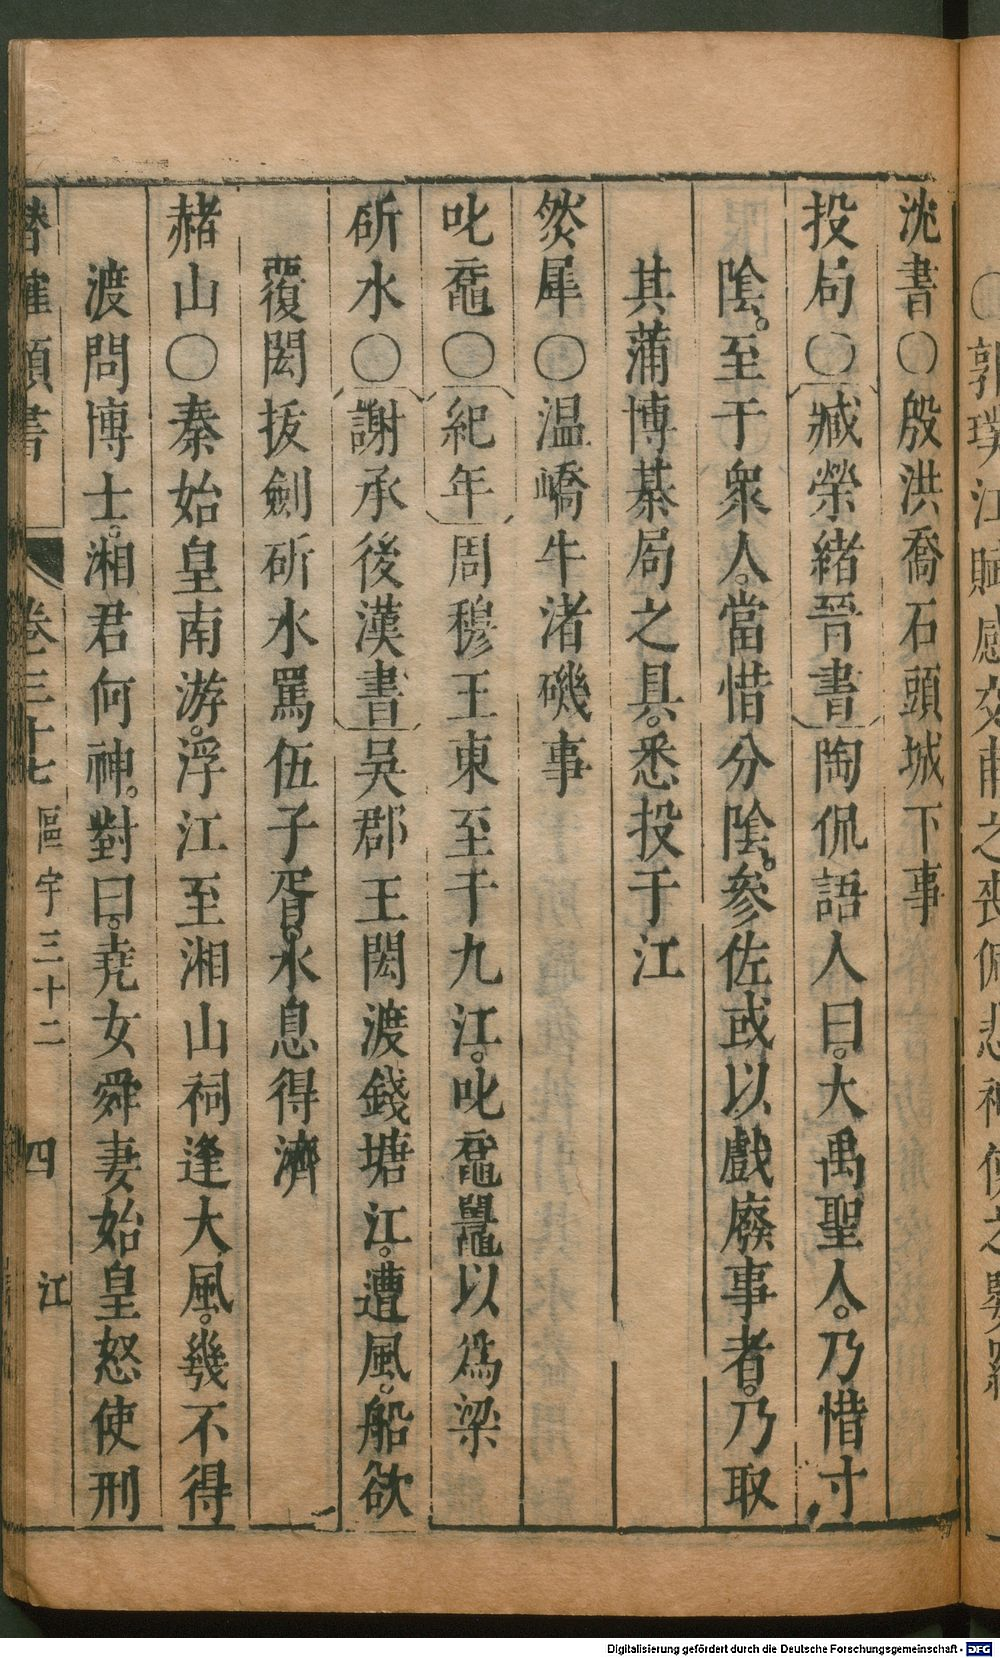 ○郭璞江賦感交甫之喪佩悲神使之嬰羅
沈書○殷洪喬石頭城下事
投局○臧榮緒晉書陶侃語人曰大禹聖人乃惜寸
陰至于衆人當惜分陰參佐或以戲廢事者乃取
其蒱博棊局之具悉投于江
然犀○温嶠牛渚磯事
叱黿○紀年周穆王東至于九江叱黿鼉以爲梁
斫水○謝承後漢書吳郡王閎渡錢塘江遭風船欲
覆閎拔劍斫水罵伍子胥水息得濟
赭山○秦始皇南游浮江至湘山祠逢大風幾不得
渡問博士湘君何神對曰堯女舜妻始皇怒使刑
潛確類書 卷三十七 區宇三十二 四 江
Digitalisierung gefördert durch die Deutsche Forschungsgemeinschaft - DFG